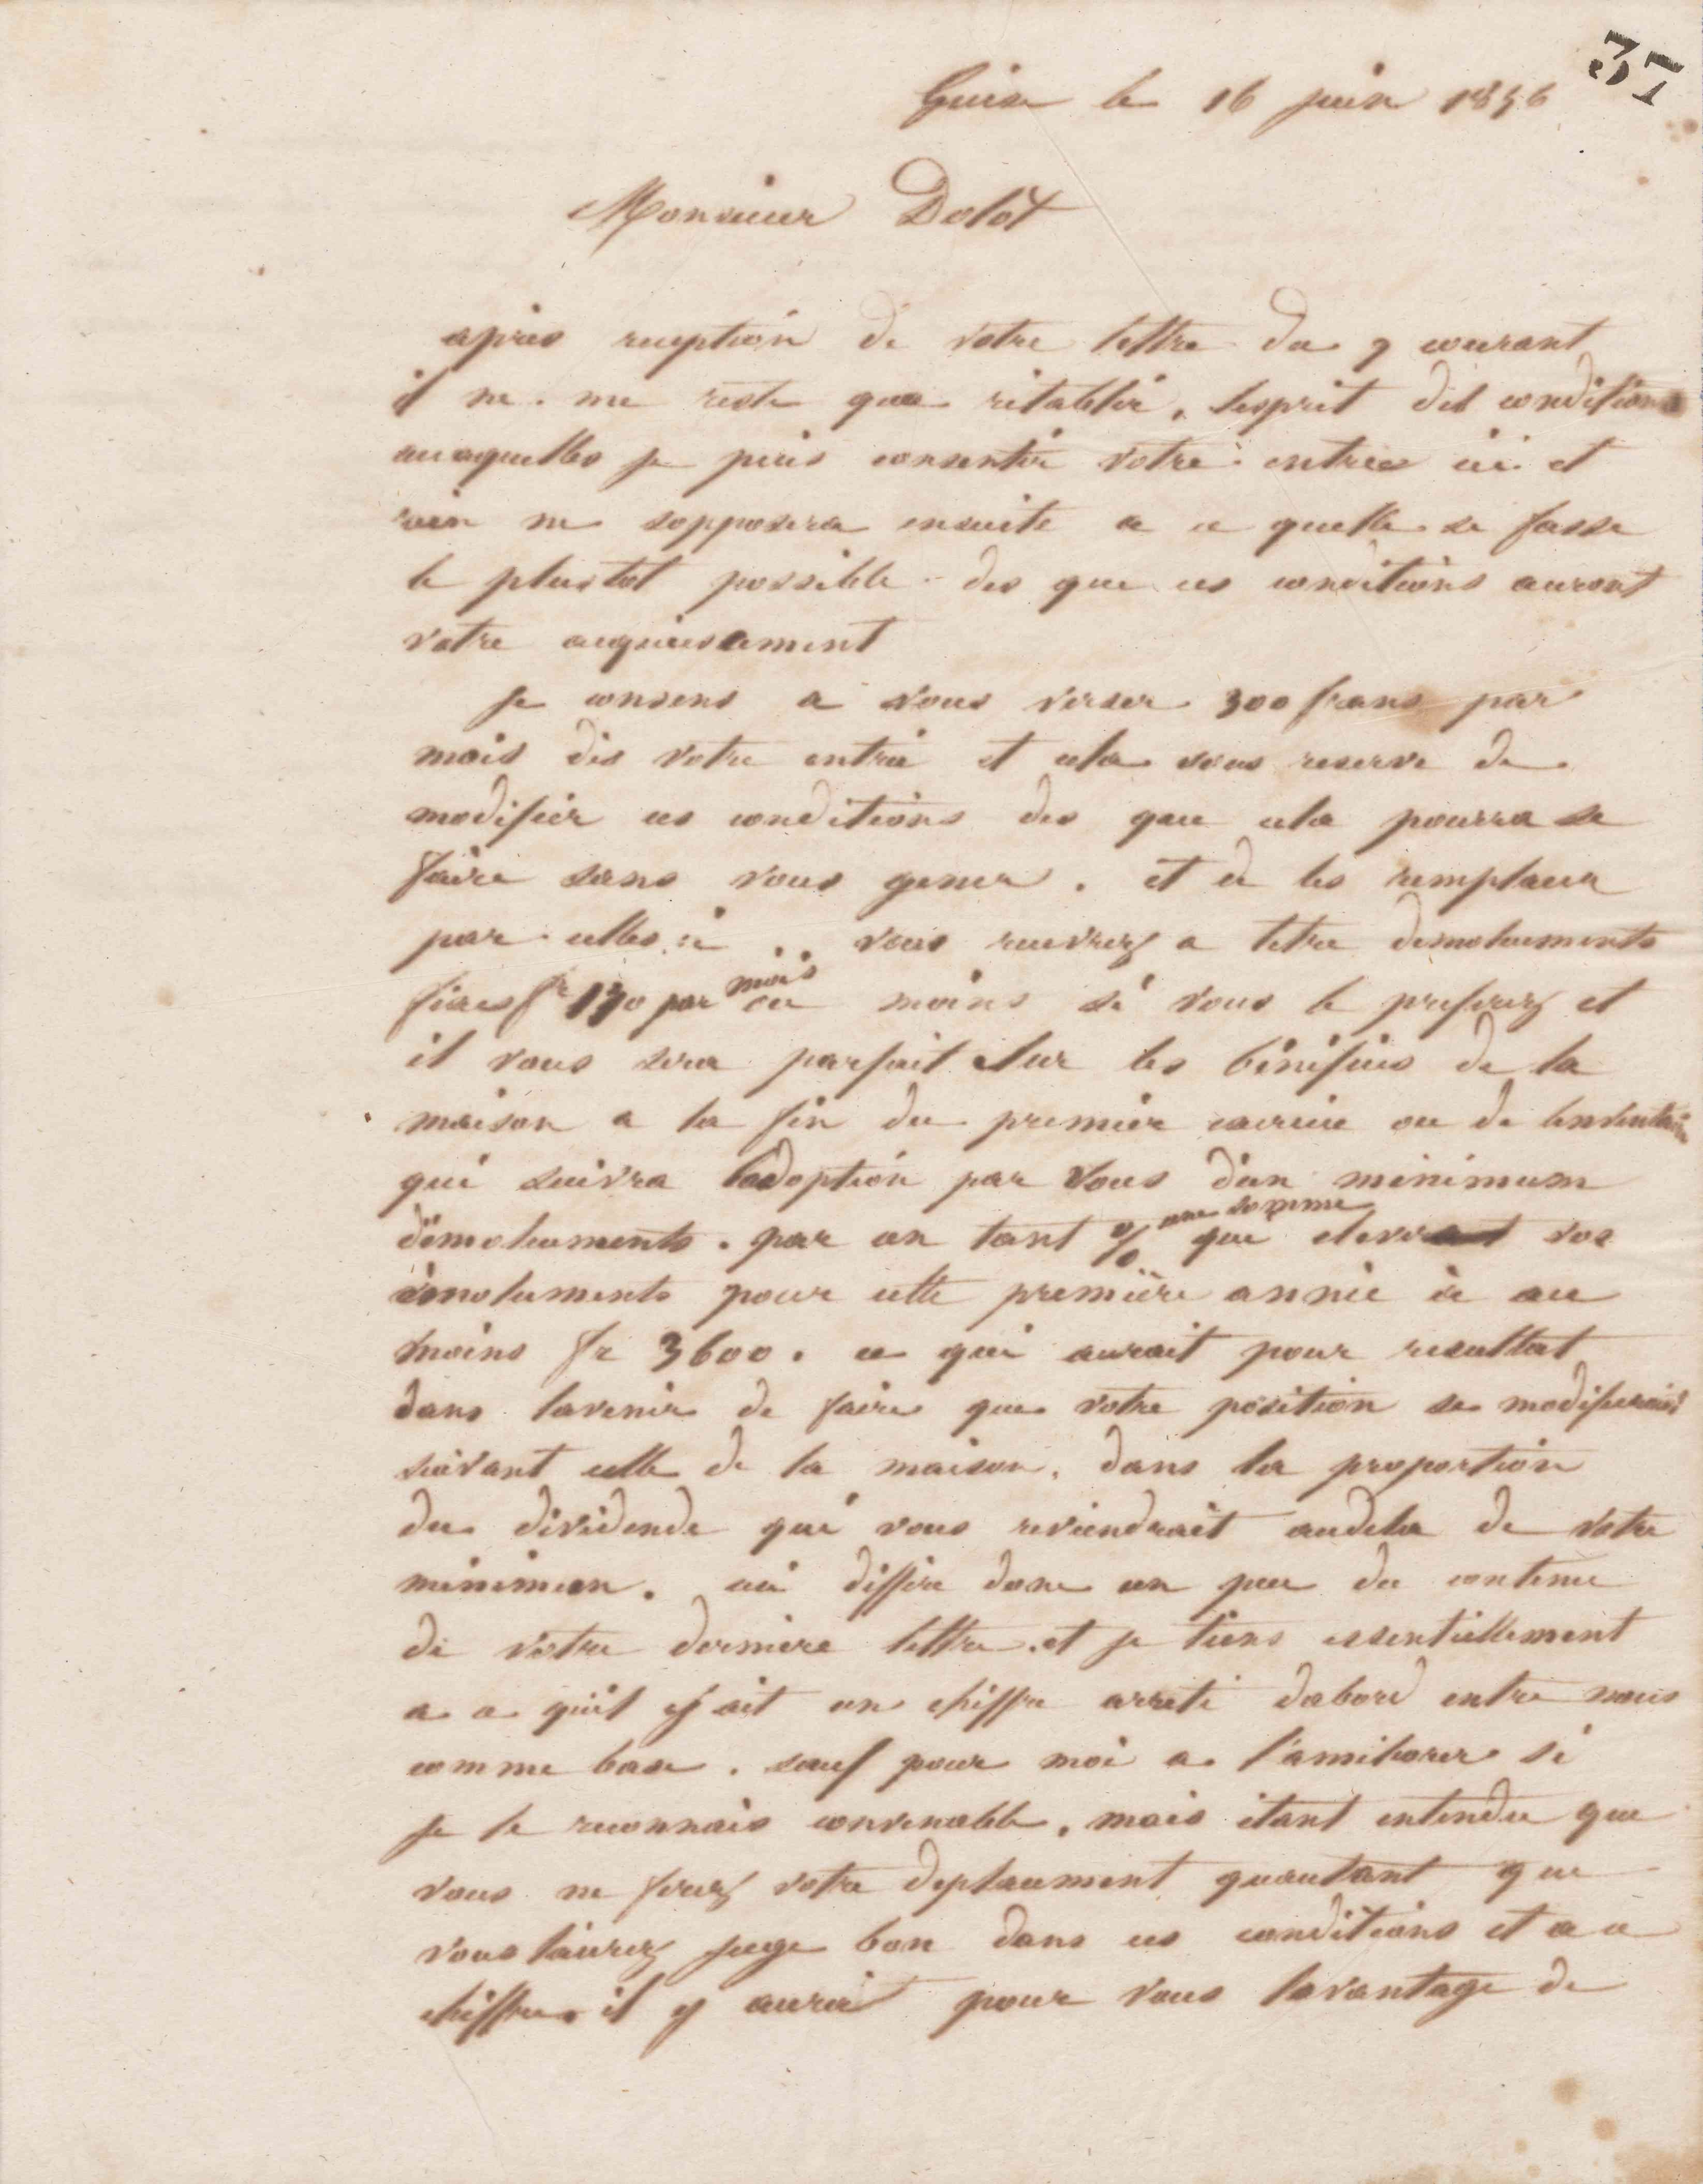 37
Guise le 16 juin 1856
Monsieur Dolot
après reception de votre lettre du 9 courant
il ne me reste qua rétablir, lesprit des conditions
auxquelles je puis consentir votre entrée ici et
rien ne sopposera ensuite a ce quelle se fasse
le plustot possible des que ces conditions auront
votre acquiescement
Je consens a vous verser 300 francs par
mois dès votre entrée et cela sous reserve de
modifier ces conditions des que cela pourra se
faire sans vous gener. et de les remplacer
par celles ci .. vous recevrez a titre démoluments
fixes fr 150 par mois ou moins si vous le preferez et
il vous sera parfait sur les bénéfices de la
maison a la fin du premier exercice ou de linventaire
qui suivra ladoption par vous dun minimum
démoluments. par un tant % une somme que elevera vos
émoluments pour cette première année à au
moins fr 3600. ce qui aurait pour resultat
dans lavenir de faire que votre position se modifierait
suivant celle de la maison, dans la proportion
du dividende qui vous reviendrait audela de votre
minimum. ceci diffère donc un peu du contenu
de votre derniere lettre. et je tiens essentiellement
a ce quil y ait un chiffre arreté dabord entre nous
comme base. sauf pour moi a l'améliorer si
je le reconnais convenable, mais étant entendu que
vous ne ferez votre deplacement quautant que
vous laurez juge bon dans ces conditions et a ce
chiffre. il y aurait pour vous lavantage de